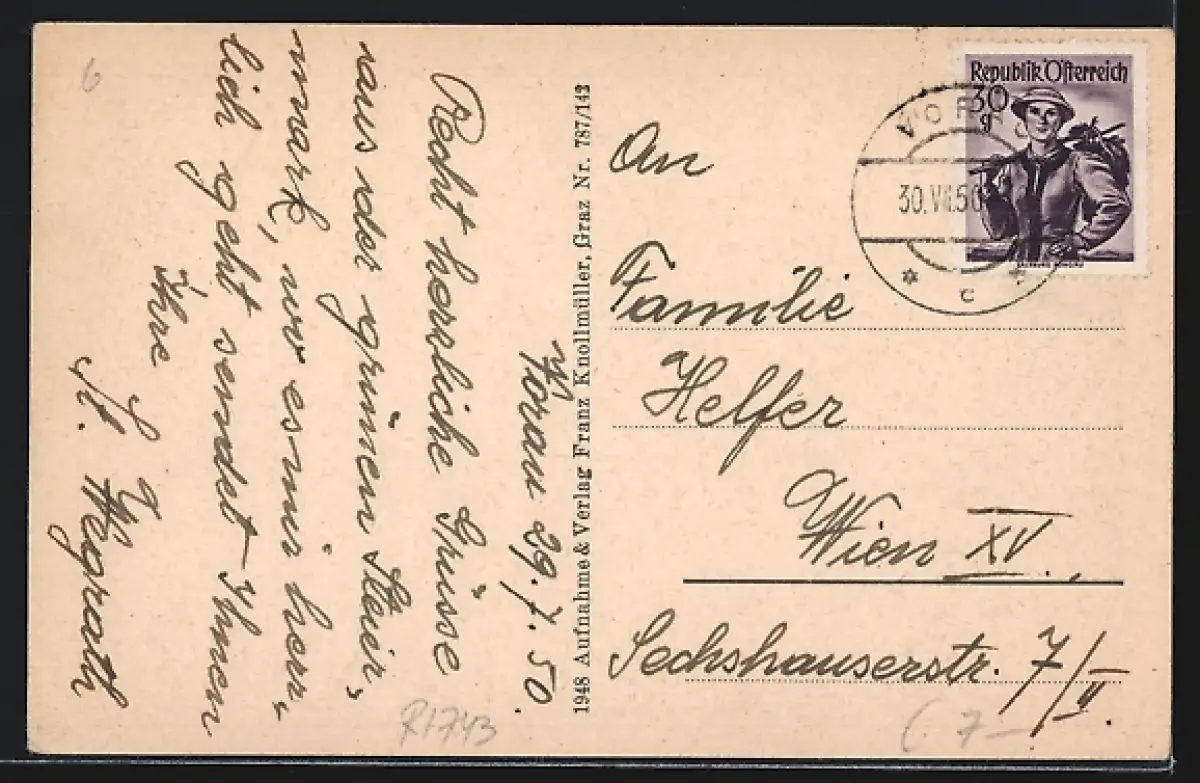 Vorau 29.7.50.
Recht herrliche Grüsse
aus der grünen Steier„
mark, wo es mir herr„
lich geht sendet Ihnen
Ihre
St. Wegrath
1948 Aufnahme & Verlag Franz Knollmüller, Graz Nr. 787/142
Republik Österreich
30
g
VORAU
30.VII.50
c
An
Familie
Helfer
Wien XV.,
Sechshauserstr. 7/II.
R1743
7—
6